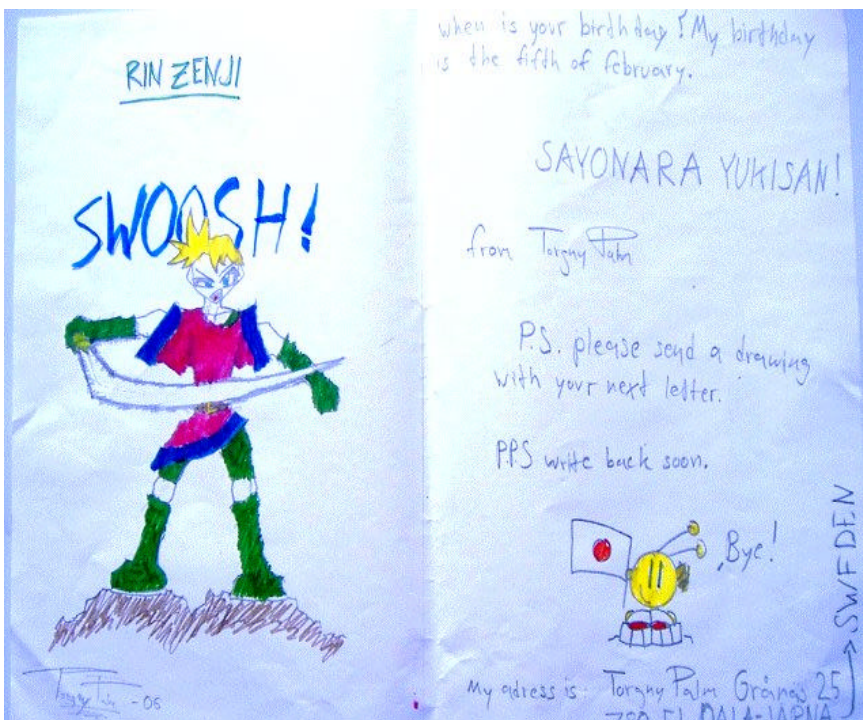 RIN ZENJI
SWOOSH!
-06
when is your birthday? My birthday
is the fifth of february.
SAYONARA YUKISAN!
from Torgny Palm
P.S. please send a drawing
with your next letter.
P.P.S write back soon.
Bye!
My adress is: Torgny Palm Grånäs 25
DALA-JÄRNA
SWEDEN